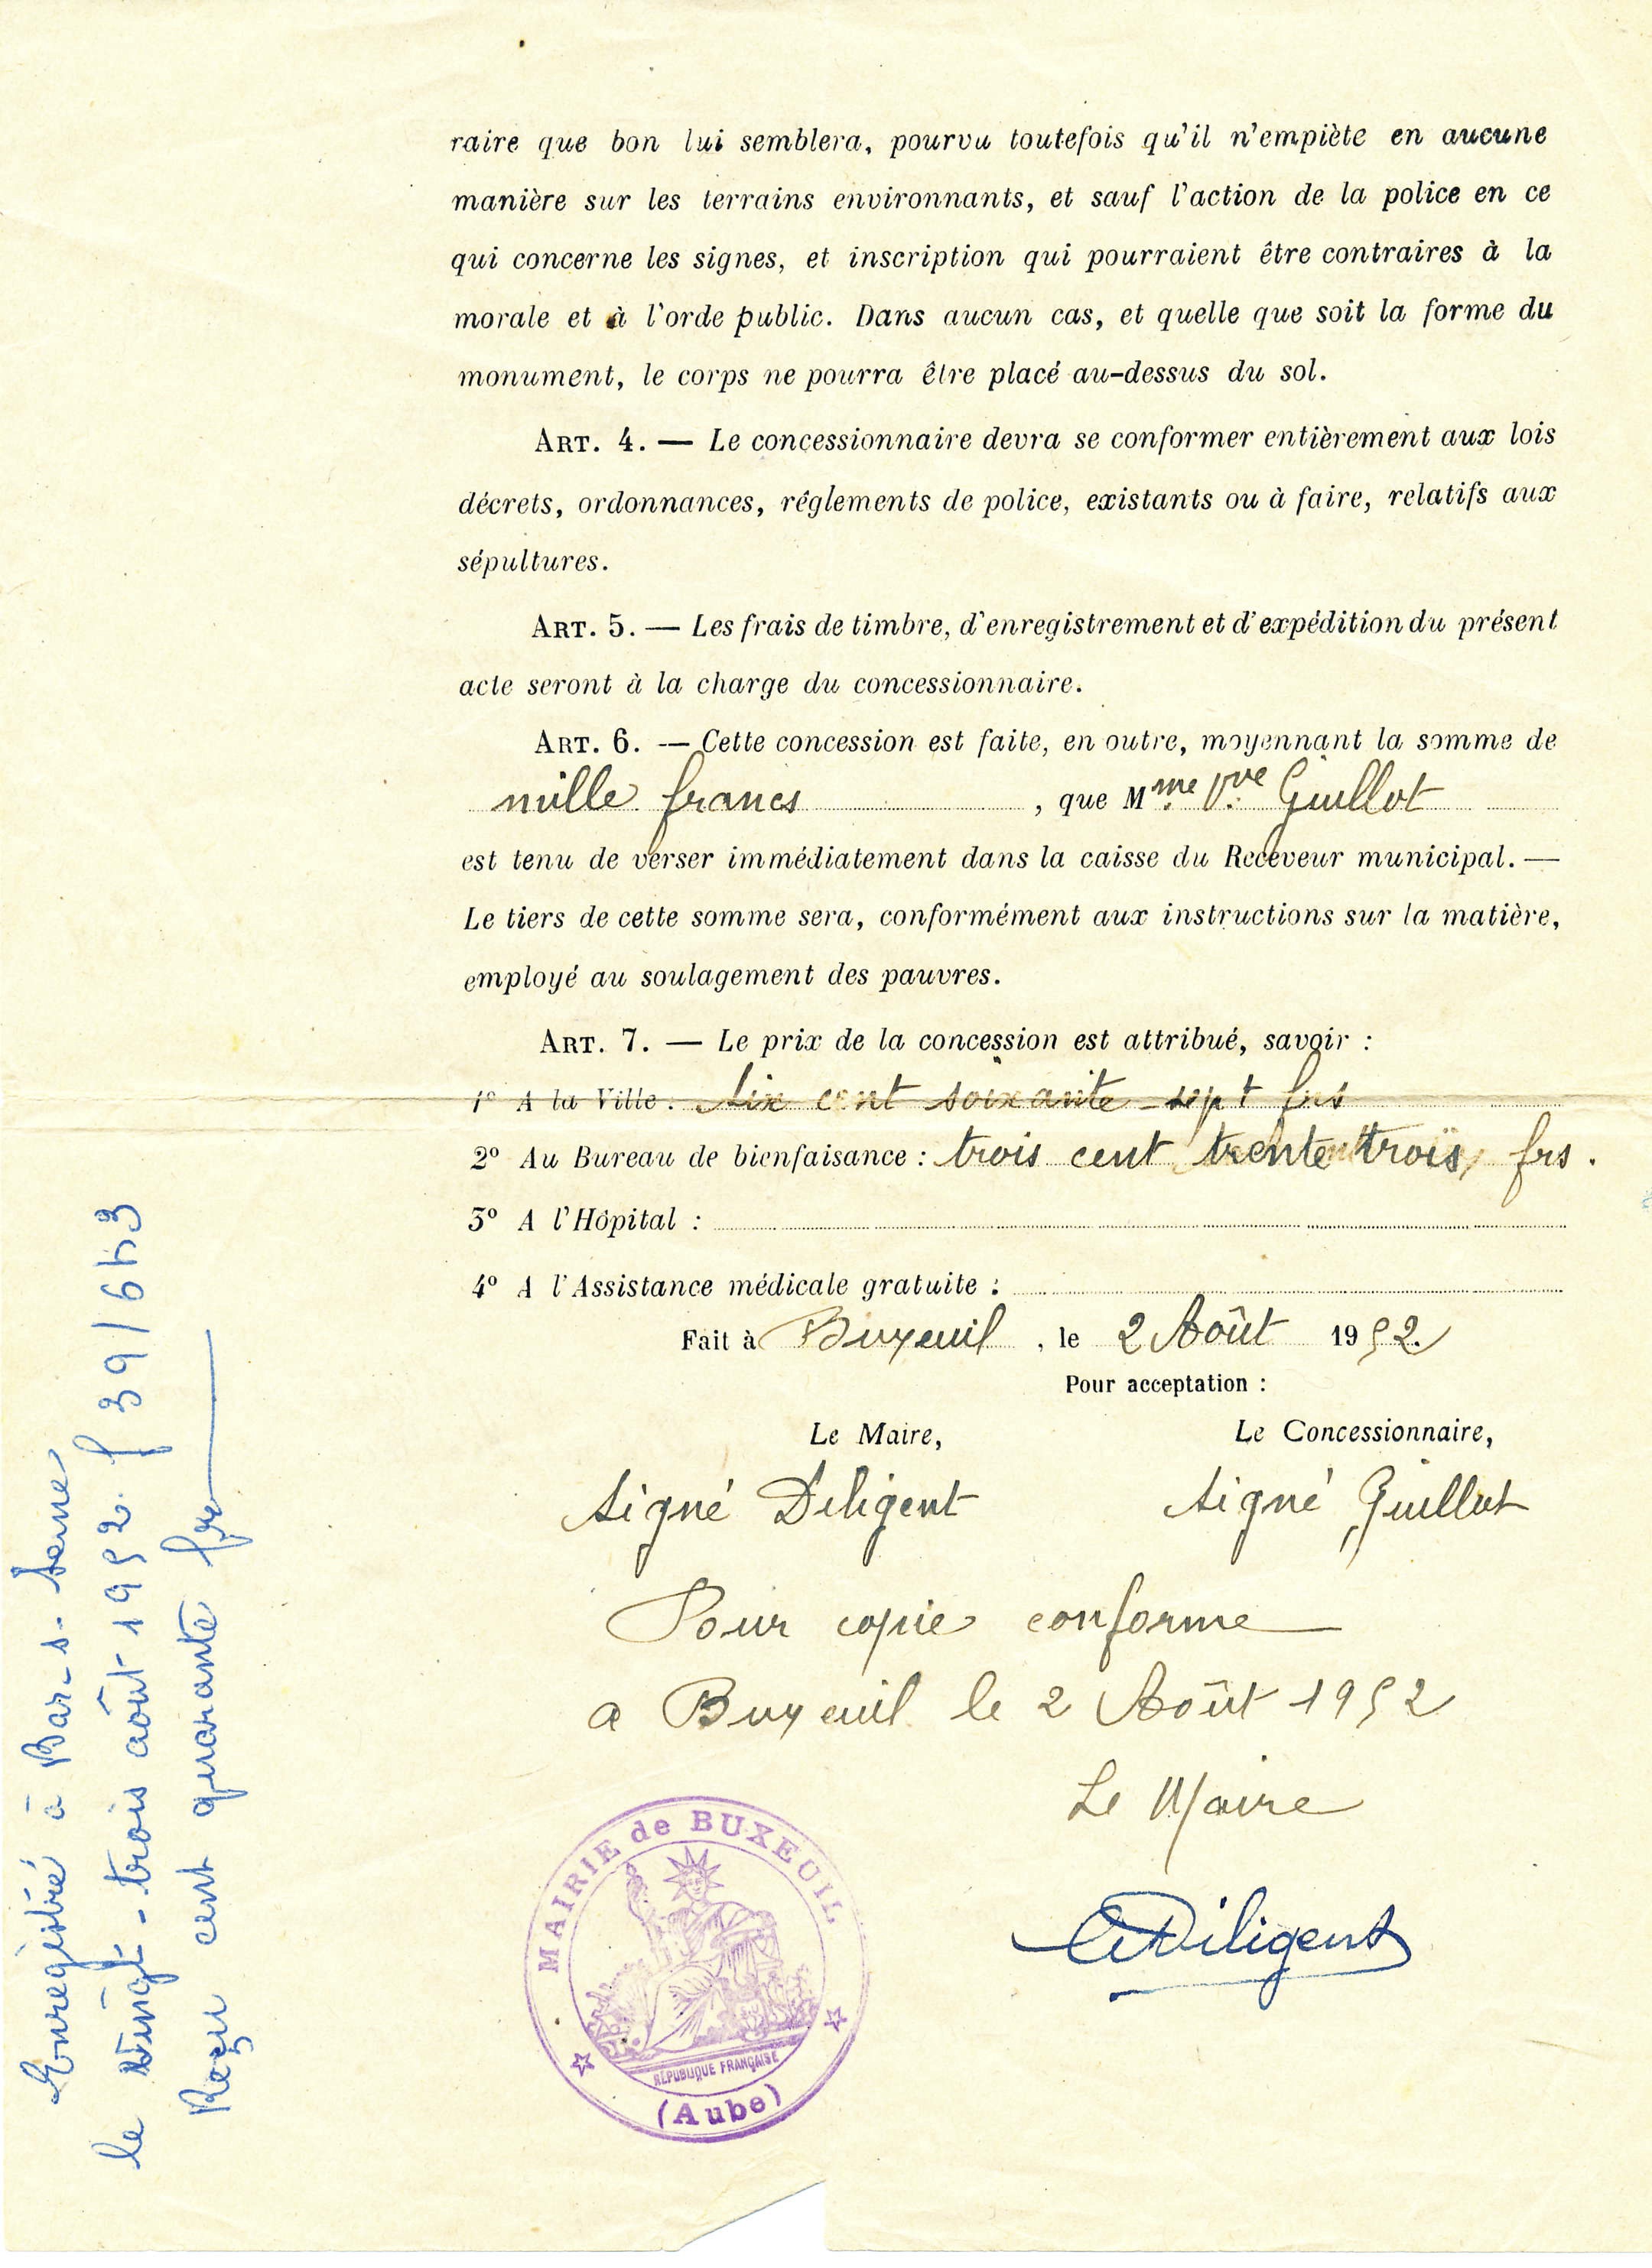 raire que bon lui semblera, pourvu toutefois qu'il n'empiète en aucune
manière sur les terrains environnants, et sauf l'action de la police en ce
qui concerne les signes, et inscription qui pourraient être contraires à la
morale et à l'orde public. Dans aucun cas, et quelle que soit la forme du
monument, le corps ne pourra être placé au-dessus du sol.
ART. 4. — Le concessionnaire devra se conformer entièrement aux lois
décrets, ordonnances, réglements de police, existants ou à faire, relatifs aux
sépultures.
ART. 5. — Les frais de timbre, d'enregistrement et d'expédition du présent
acte seront à la charge du concessionnaire.
ART. 6. — Cette concession est faite, en outre, moyennant la somme de
mille francs, que Mme Vve Guillot
est tenu de verser immédiatement dans la caisse du Receveur municipal. —
Le tiers de cette somme sera, conformément aux instructions sur la matière,
employé au soulagement des pauvres.
ART. 7. — Le prix de la concession est attribué, savoir :
1° A la Ville : six cent soixante-sept frs
2° Au Bureau de bienfaisance : trois cent trente trois, frs.
3° A l'Hôpital :
4° A l'Assistance médicale gratuite :
Fait à Buxeuil, le 2 Août 1952.
Pour acceptation :
Le Maire, Le Concessionnaire,
signé Diligent signé Guillot
Pour copie conforme
a Buxeuil le 2 Août 1952
Le Maire
Diligent
MAIRIE de BUXEUIL
RÉPUBLIQUE FRANÇAISE
(Aube)
Enregistré à Bar-s-Seine
le vingt-trois août 1952 f 39/643
Reçu cent quarante frs